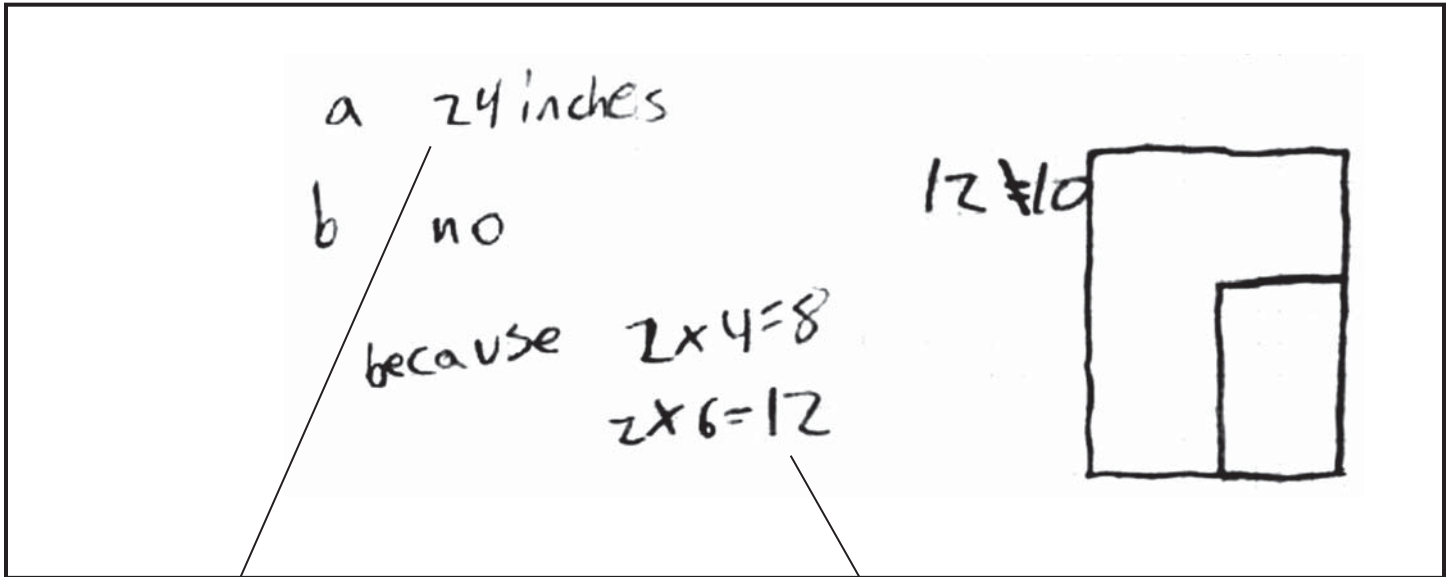 a 24 inches
b no
because 2×4=8
2×6=12
12 ≠10